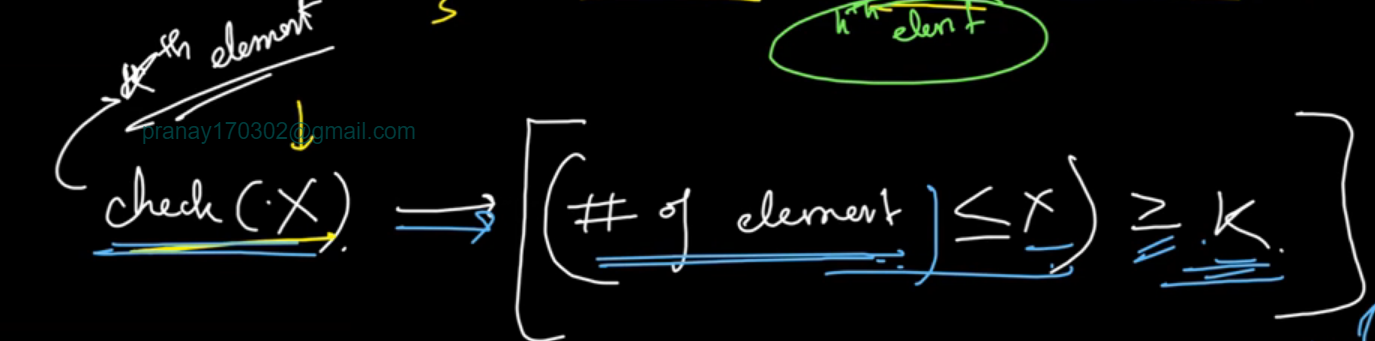 Kth element
5
kth element
pranay170302@gmail.com
check(X) → [(# of element ≤ x) ≥ K]